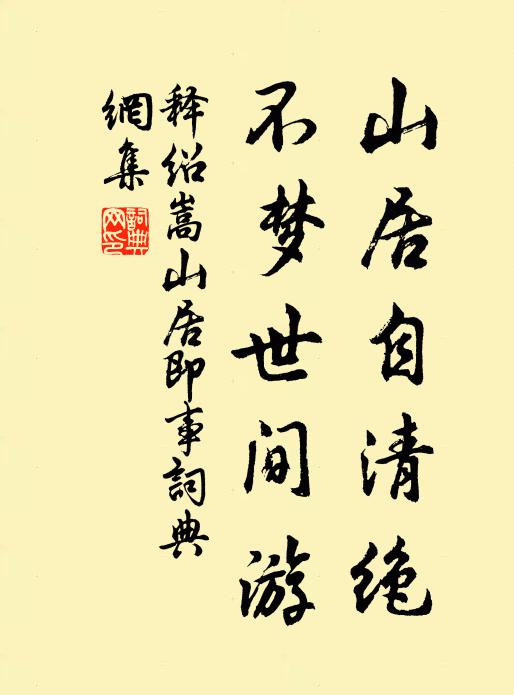 山居自清绝
不梦世间游
释绍嵩山居即事词典
網集
詞典網印